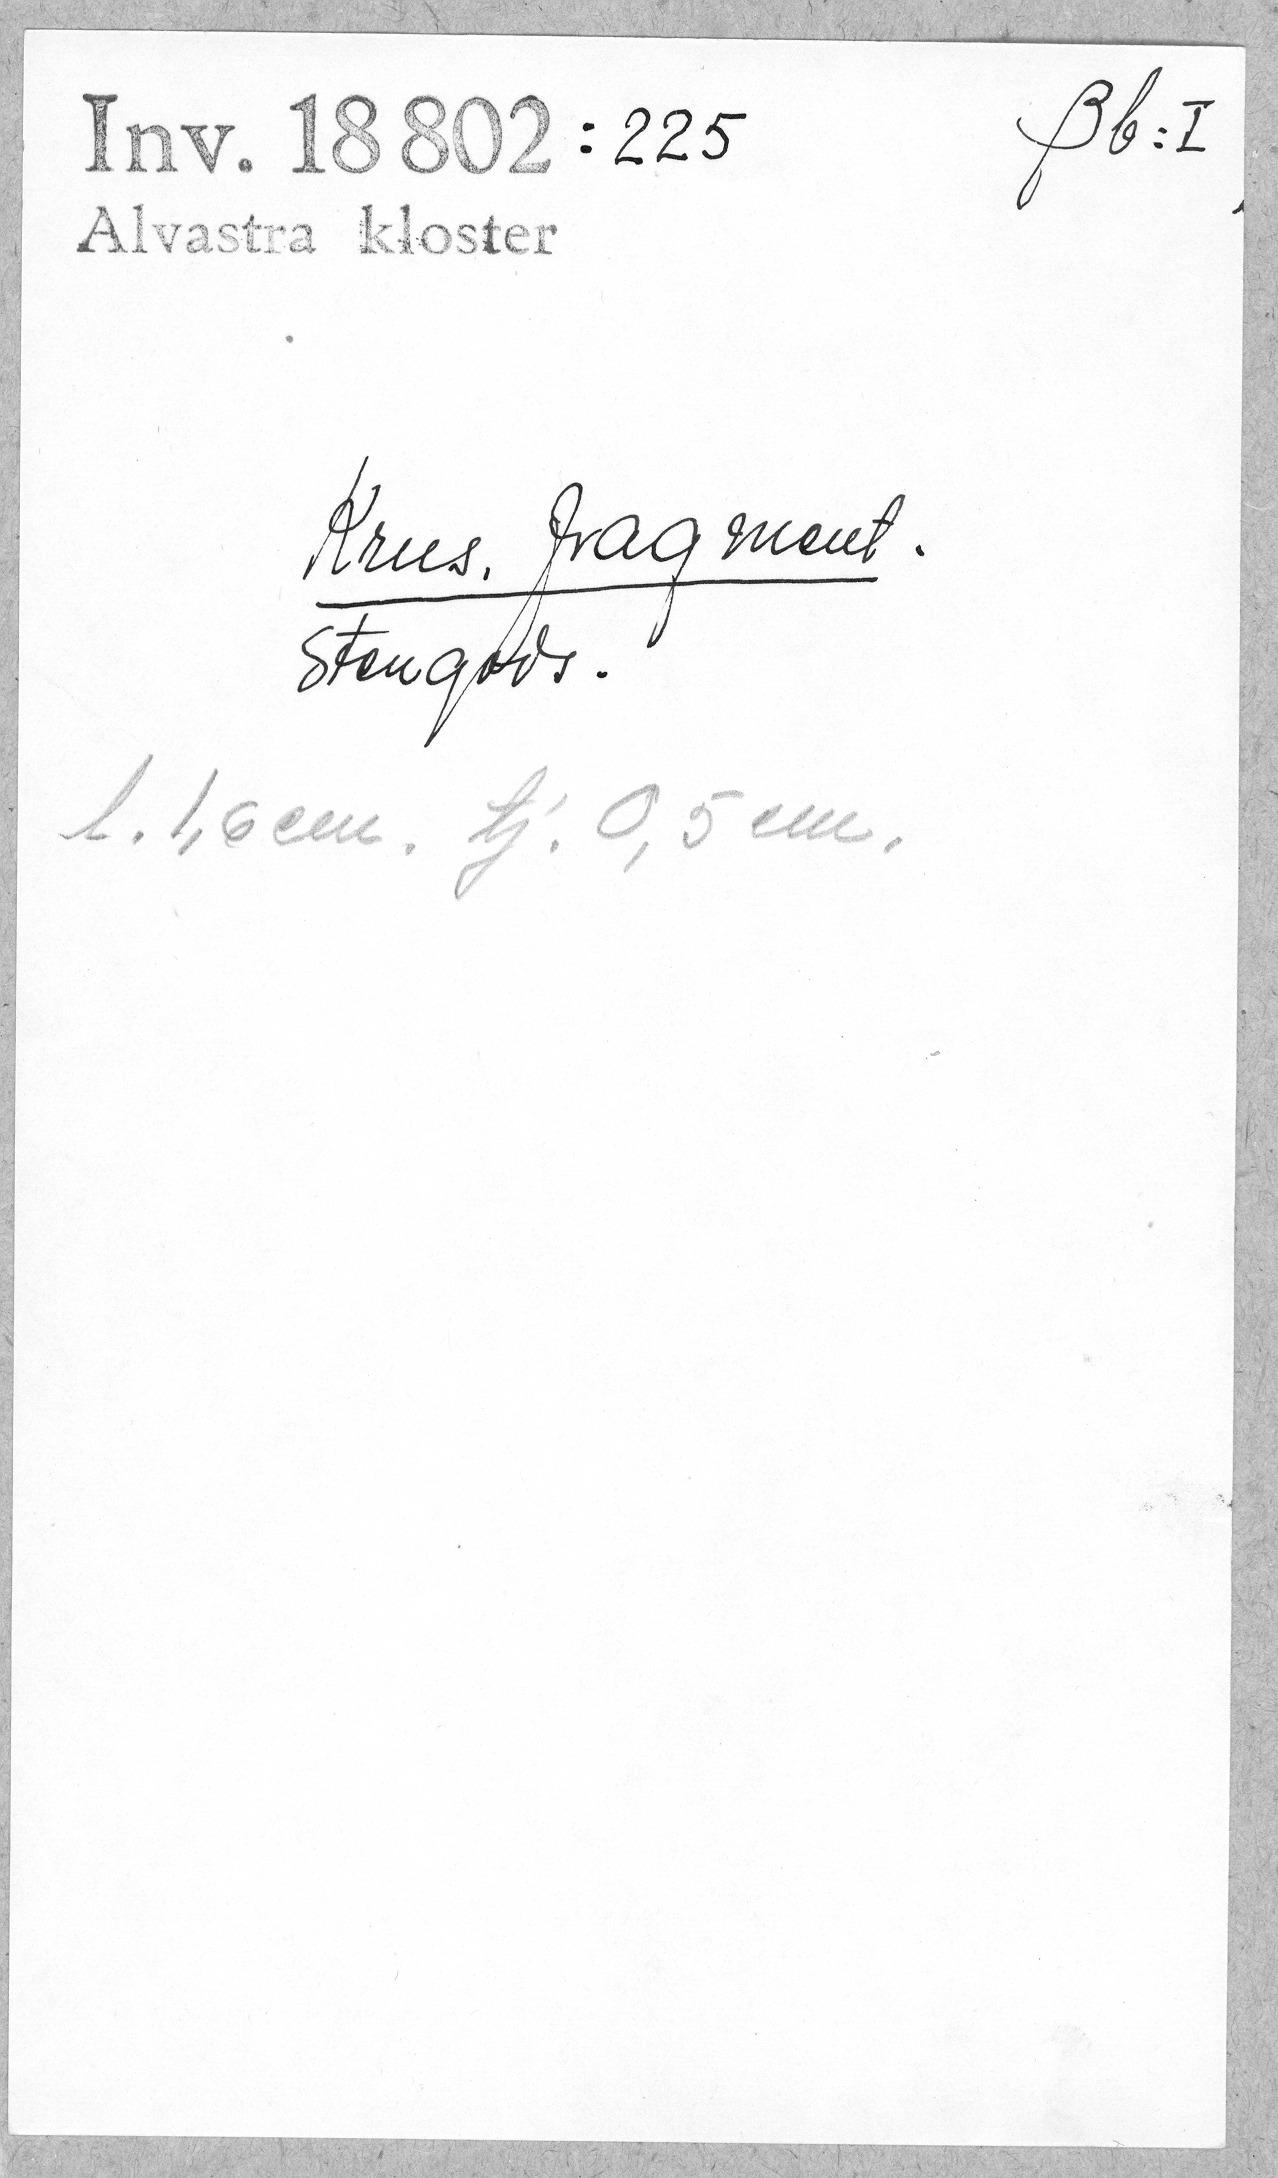 Inv. 18 802 :225
βb:I
Alvastra kloster
Krus. fragment.
Stengods.
l. 1,6 cm. tj. 0,5 cm.